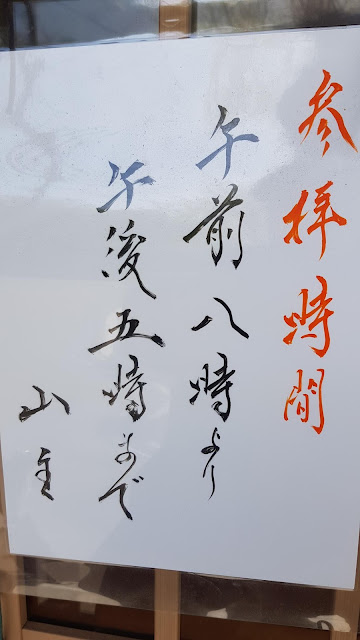 参拝時間
午前八時より
午後五時まで
山主